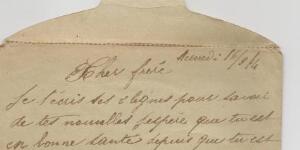 Samedi 16/5/14
Cher frère
Je t'écris ses 2 lignes pour savoir
de tes nouvelles j'espère que tu est
en bonne santé depuis que tu est